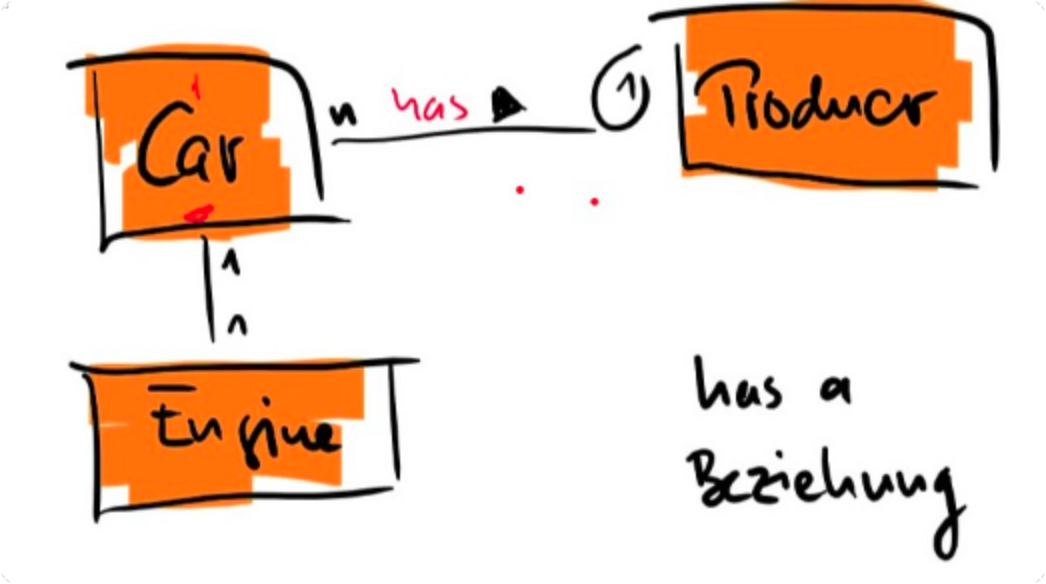 Car
n has
1
Producer
1
n
Engine
has a
Beziehung